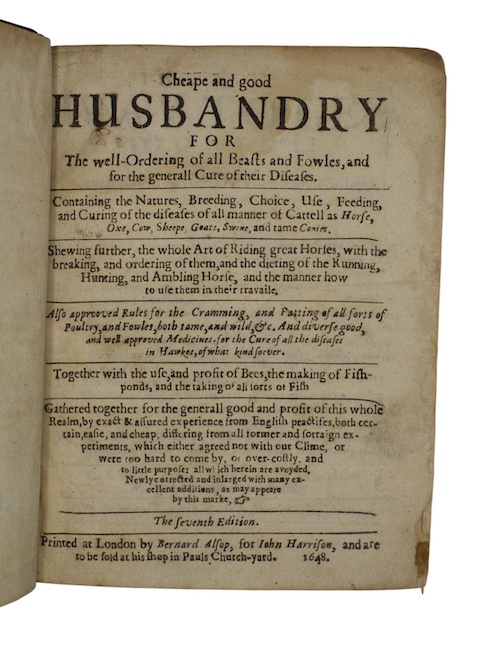 Cheape and good
HUSBANDRY
FOR
The well-Ordering of all Beasts and Fowles, and
for the generall Cure of their Diseases.
Containing the Natures, Breeding, Choice, Use, Feeding,
and Curing of the diseases of all manner of Cattell as Horse,
Oxe, Cow, Sheepe, Goats, Swine, and tame Conies.
Shewing further, the whole Art of Riding great Horses, with the
breaking, and ordering of them, and the dieting of the Running,
Hunting, and Ambling Horse, and the manner how
to use them in their travaile.
Also approoved Rules for the Cramming, and Fatting of all sorts of
Poultry, and Fowles, both tame, and wild, &c. And diverse good,
and well approved Medicines, for the Cure of all the diseases
in Hawkes, of what kind soever.
Together with the use, and profit of Bees, the making of Fish-
ponds, and the taking of all sorts of Fish
Gathered together for the generall good and profit of this whole
Realm, by exact & assured experience from English practises, both cer-
tain, easie, and cheap, differing from all former and forraign ex-
periments, which either agreed not with our Clime, or
were too hard to come by, or over-costly, and
to little purpose: all which herein are avoyded,
Newly corrected and inlarged with many ex-
cellent additions, as may appeare
by this marke, ☞
The seventh Edition.
Printed at London by Bernard Alsop, for Iohn Harrison, and are
to be sold at his shop in Pauls Church-yard. 1648.